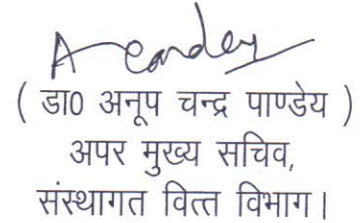 ( डा0 अनूप चन्द्र पाण्डेय )
अपर मुख्य सचिव,
संस्थागत वित्त विभाग।